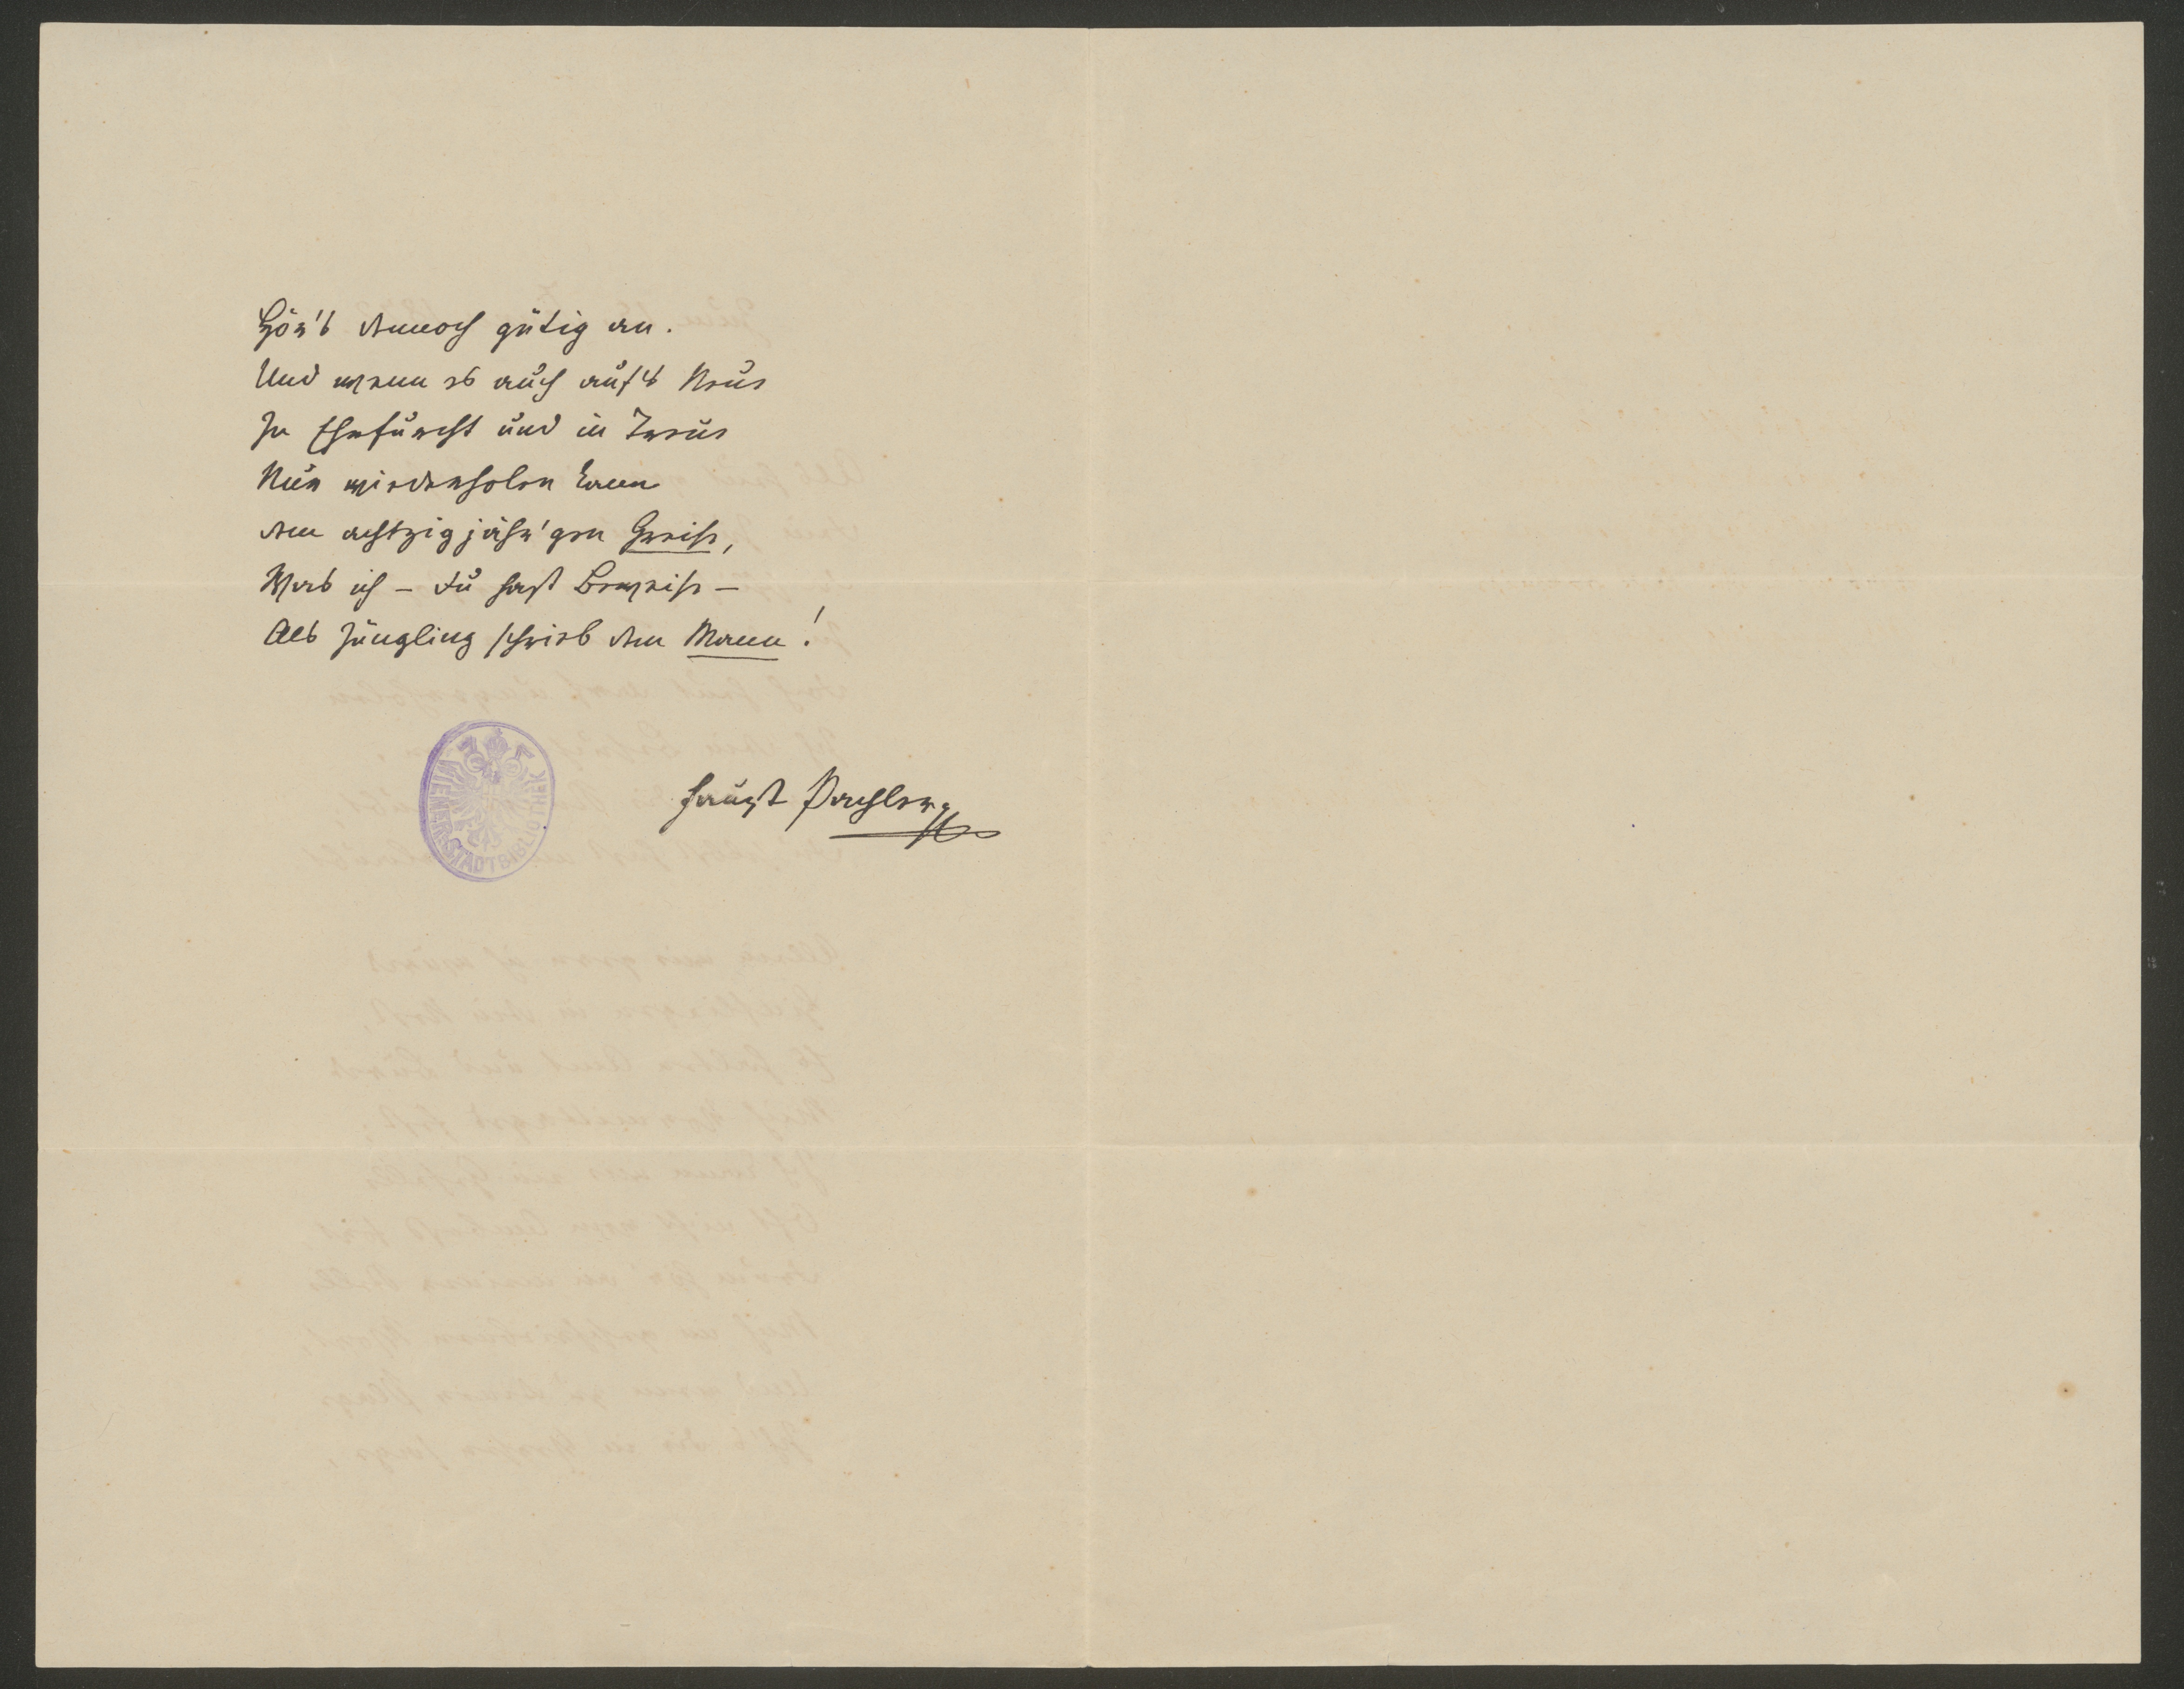 Hör's dennoch gütig an.
Und wenn es auch auf's Neue
In Ehrfurcht und in Treue
Nur wiederholen kann
dem achtzigjähr'gen Greise,
Was ich – du hast Beweise –
Als Jüngling schrieb dem Mann!
Faust Pachler
WIENER STADTBIBLIOTHEK